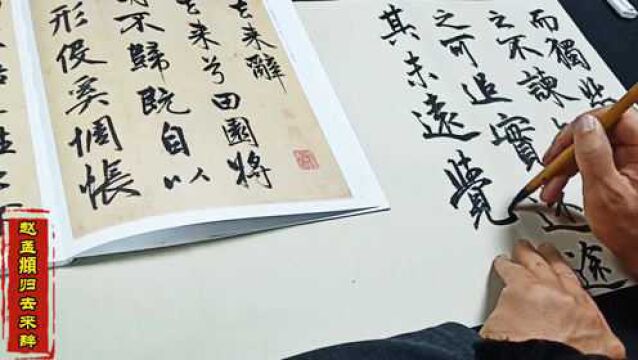 去来辭
去来兮田園將
不歸既自以
形役奚惆悵
而獨悲
之不諫
之可追實迷途
其未遠覺
赵孟頫归去来辭